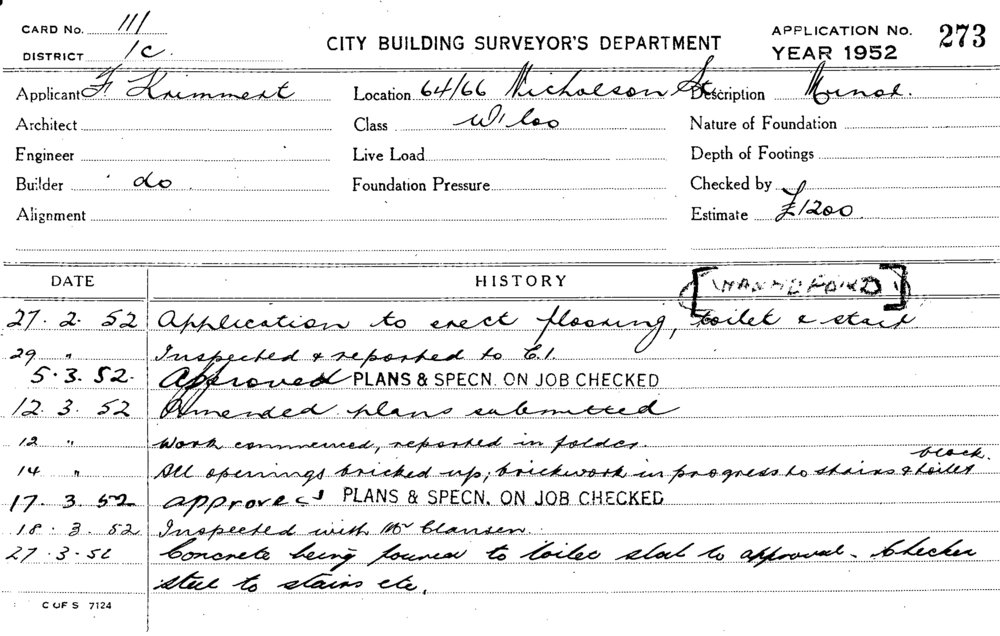 CARD No. 111
DISTRICT 1C.
CITY BUILDING SURVEYOR'S DEPARTMENT
APPLICATION No. 273
YEAR 1952
Applicant F. Krimmert Location 64/66 Nicholson St. Description
Architect Class Nature of Foundation
Engineer Live Load Depth of Footings
Builder do Foundation Pressure Checked by
Alignment Estimate £1200
DATE HISTORY
27. 2. 52 Application to erect flooring, toilet & stair
29 " Inspected & reported to C.I.
5. 3. 52. Approved PLANS & SPECN. ON JOB CHECKED
12. 3. 52 Amended plans submitted
12 " Work commenced, reported in folder.
14 " All openings bricked up; brickwork in progress to stairs & toilet block.
17. 3. 52 approved PLANS & SPECN. ON JOB CHECKED
18. 3. 52 Inspected with Mr Clausen.
27. 3. 52 Concrete being poured to toilet slab to approval. Checker
steel to stairs etc.
C OF S 7124